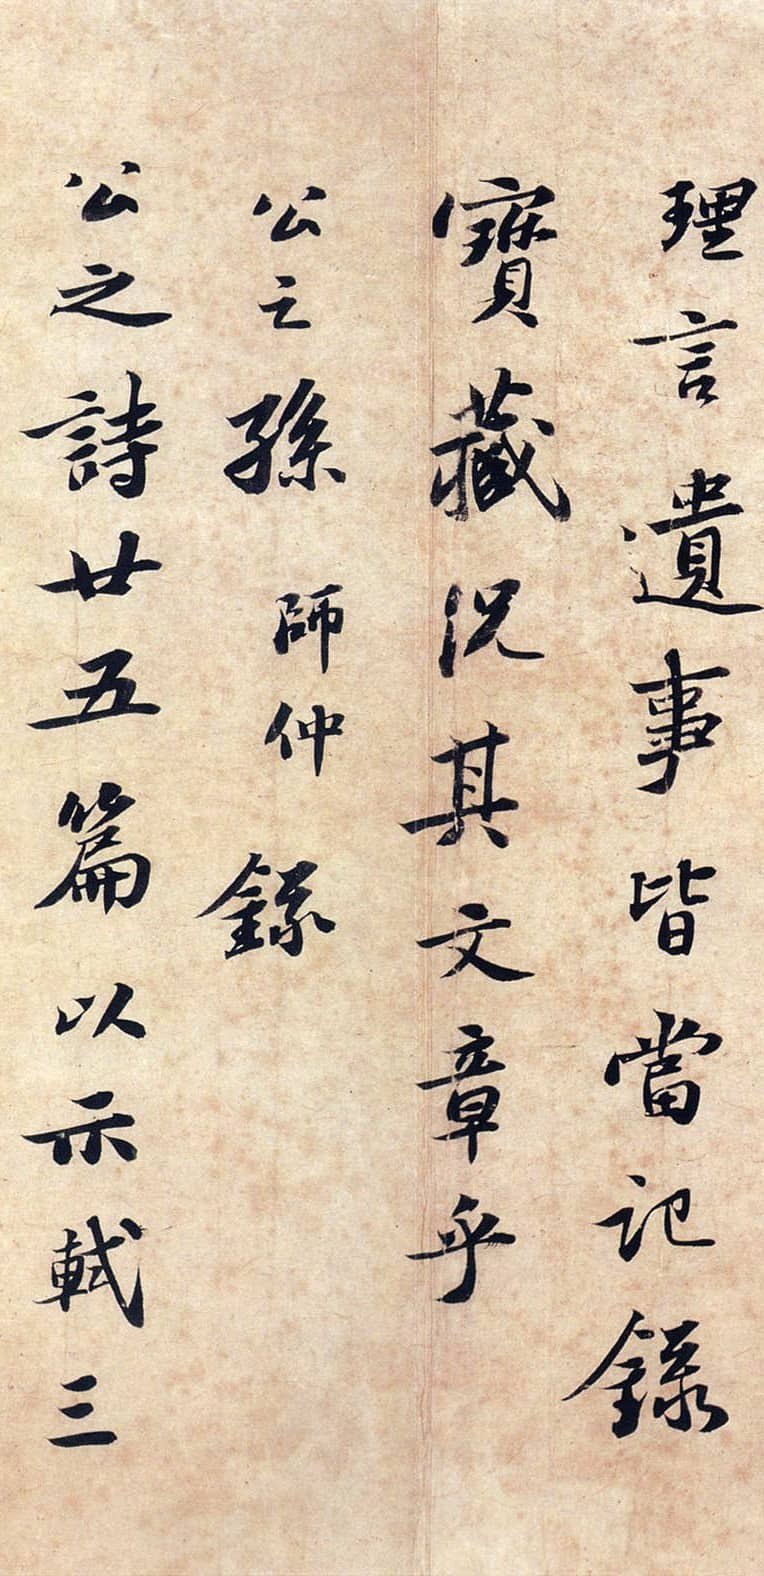 理言遺事皆當記錄
寶藏況其文章乎
公之孫師仲錄
公之詩廿五篇以示軾三